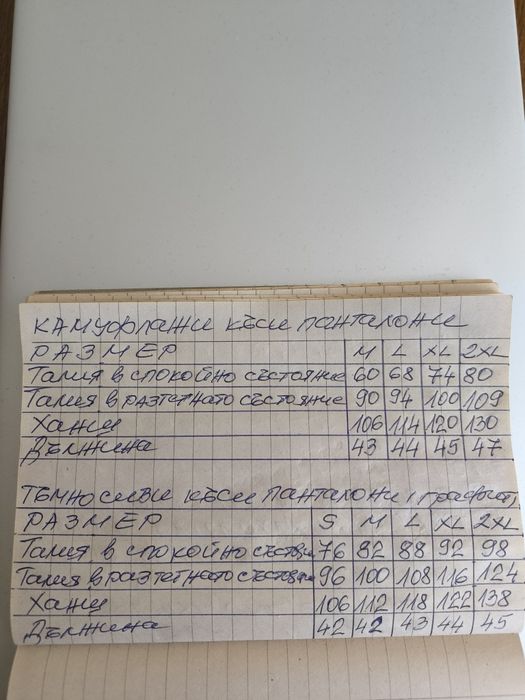 Камуфлажи къси панталони
РАЗМЕР M L XL 2XL
Талия в спокойно състояние 60 68 74 80
Талия в разтегнато състояние 90 94 100 109
Ханш 106 114 120 130
Дължина 43 44 45 47
Тъмносиви къси панталони (графит)
РАЗМЕР S M L XL 2XL
Талия в спокойно състояни 76 82 88 92 98
Талия в разтегнато състояни 96 100 108 116 124
Ханш 106 112 118 122 138
Дължина 42 42 43 44 45